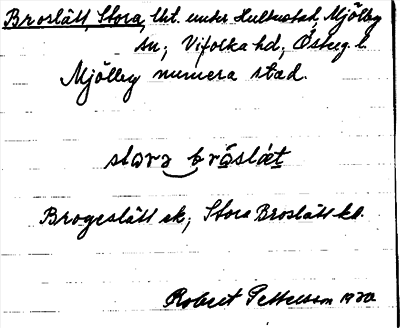 Broslätt, Stora, lht. under Hulterstad, Mjölby
sn; Vifolka hd; Östug. l.
Mjölby numera stad.
stora bråslæt
Brogeslätt sk; Stora Broslätt kd.
Robert Pettersson 1920